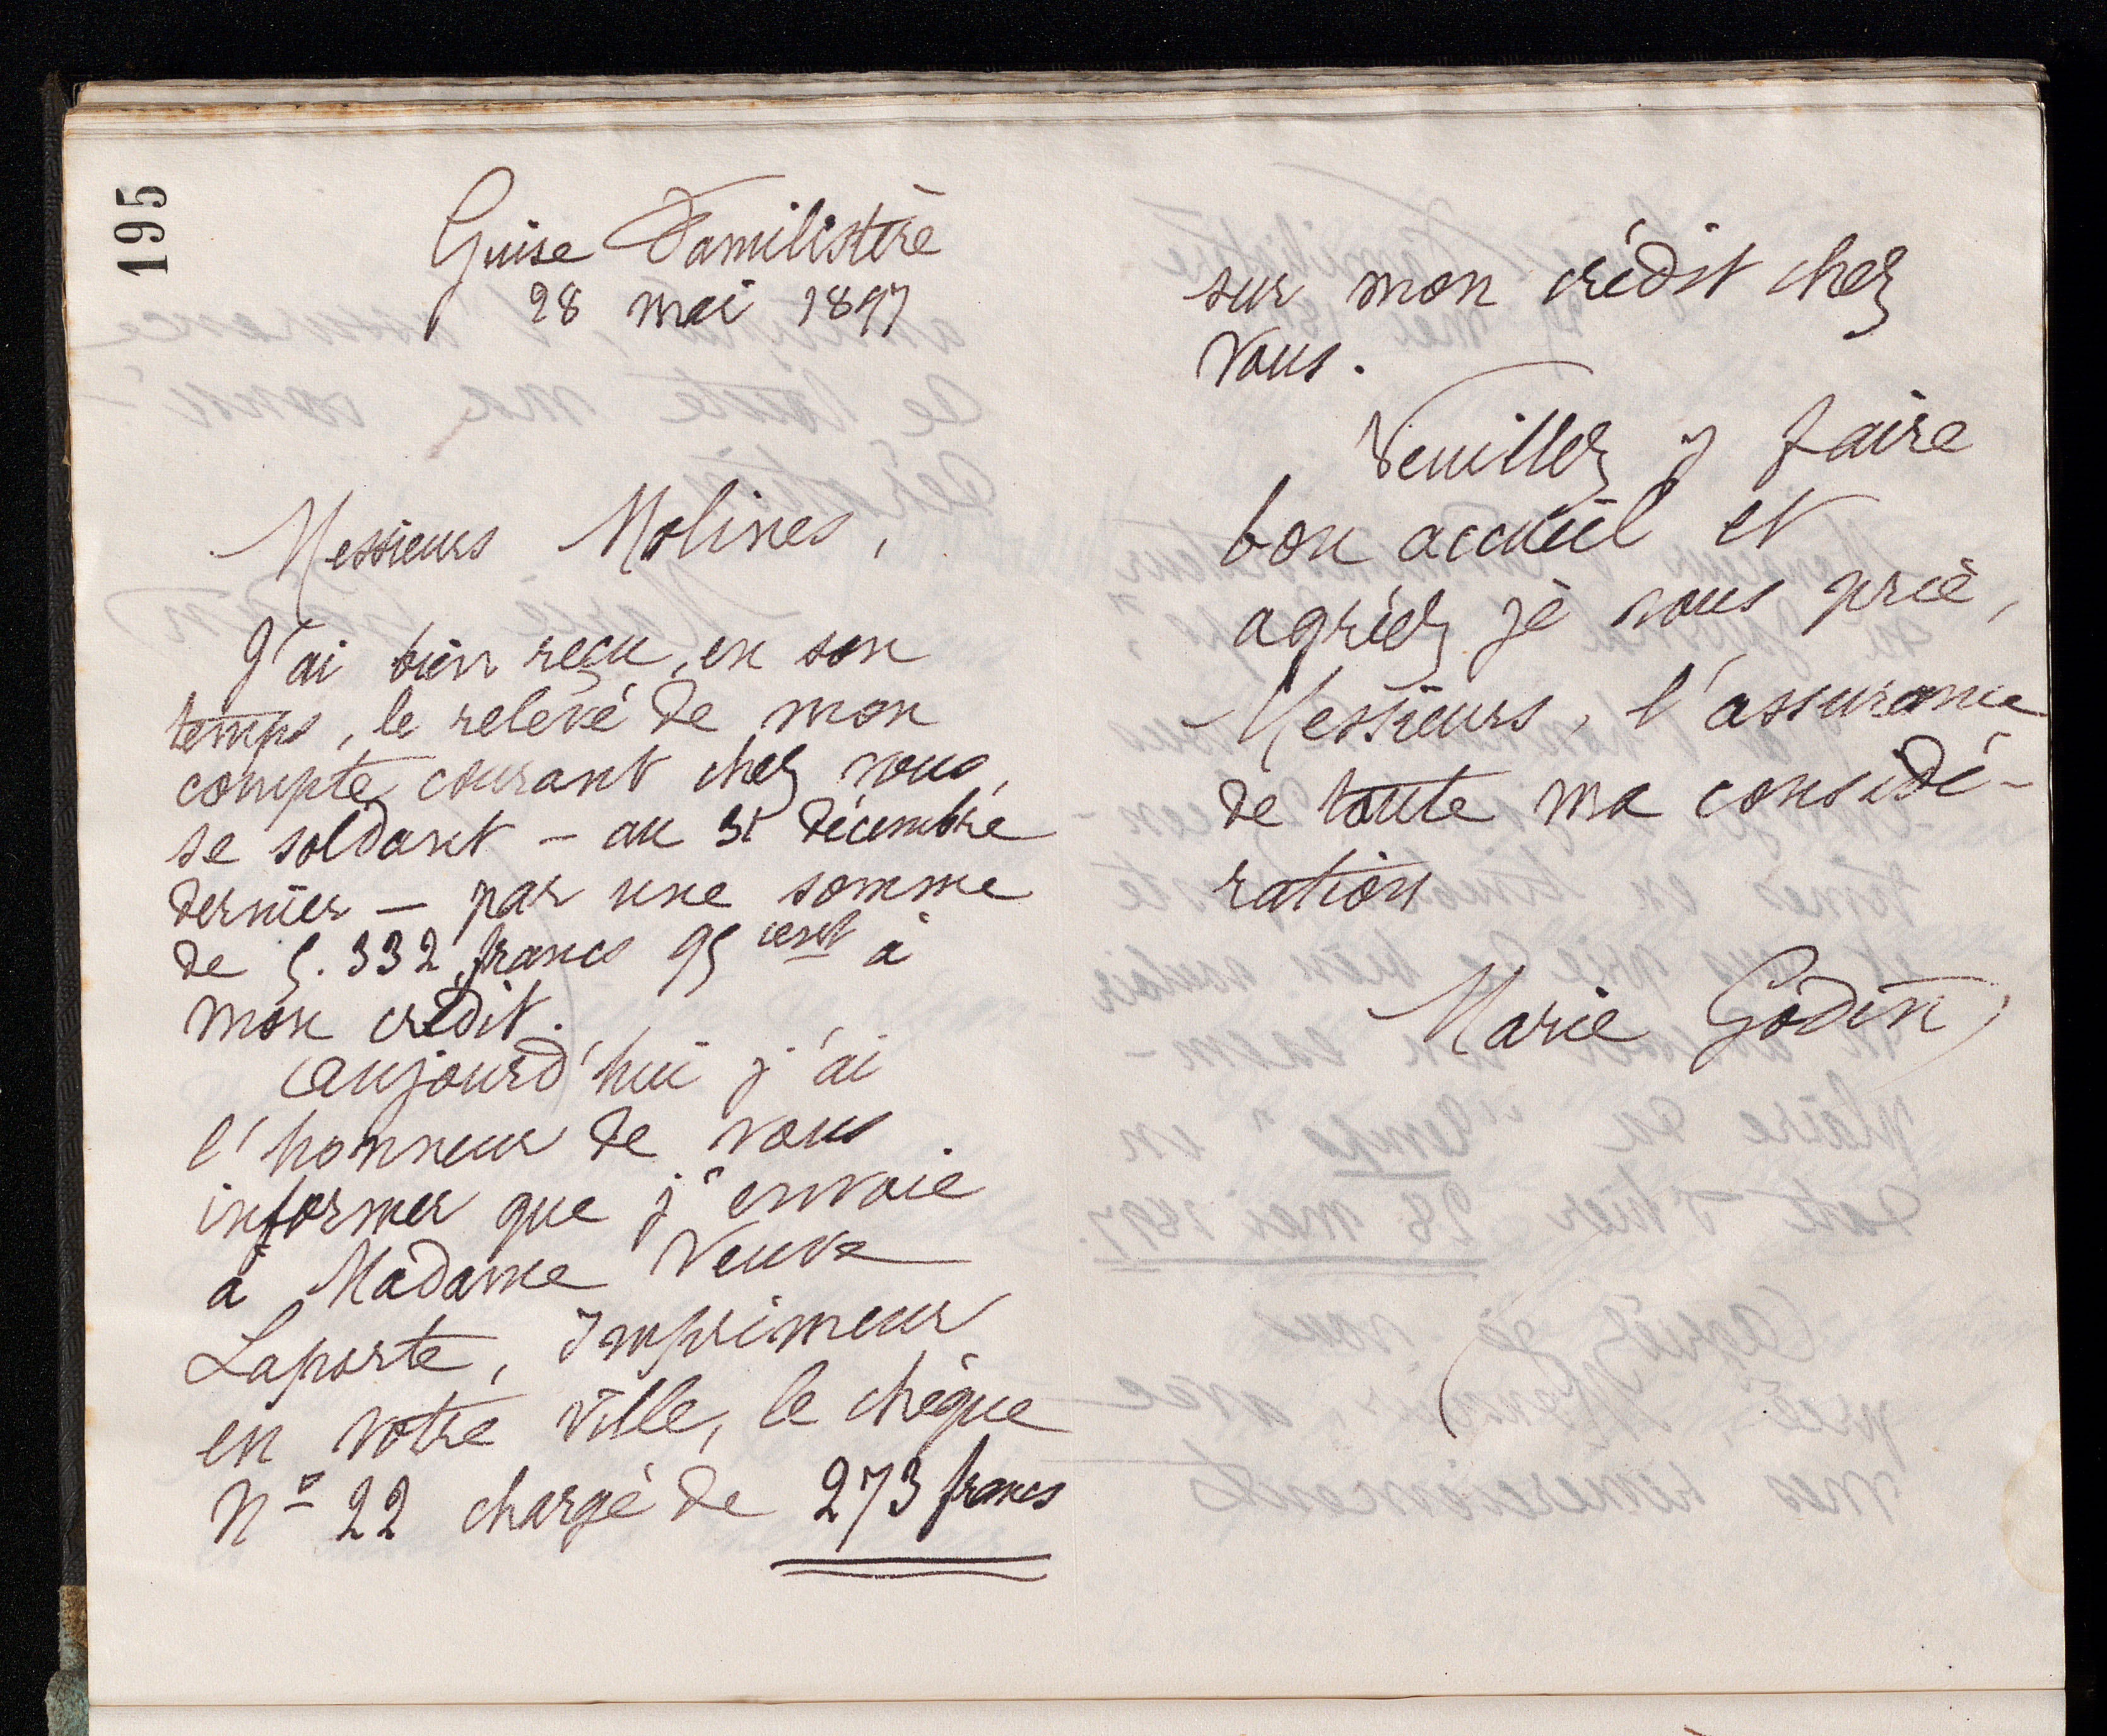 195
Guise Familistère
28 mai 1897
Messieurs Molines,
J'ai bien reçu, en son
temps, le relevé de mon
compte courant chez vous,
se soldant — au 31 décembre
dernier — par une somme
de 5.332 francs 95 cent à
mon crédit.
Aujourd'hui j'ai
l'honneur de vous
informer que j'envoie
à Madame Veuve
Laporte, Imprimeur
en votre ville, le chèque
Nº 22 chargé de 273 francs
sur mon crédit chez
vous.
Veuillez y faire
bon accueil et
agréez je vous prie,
Messieurs, l'assurance
de toute ma considé-
ration
Marie Godin